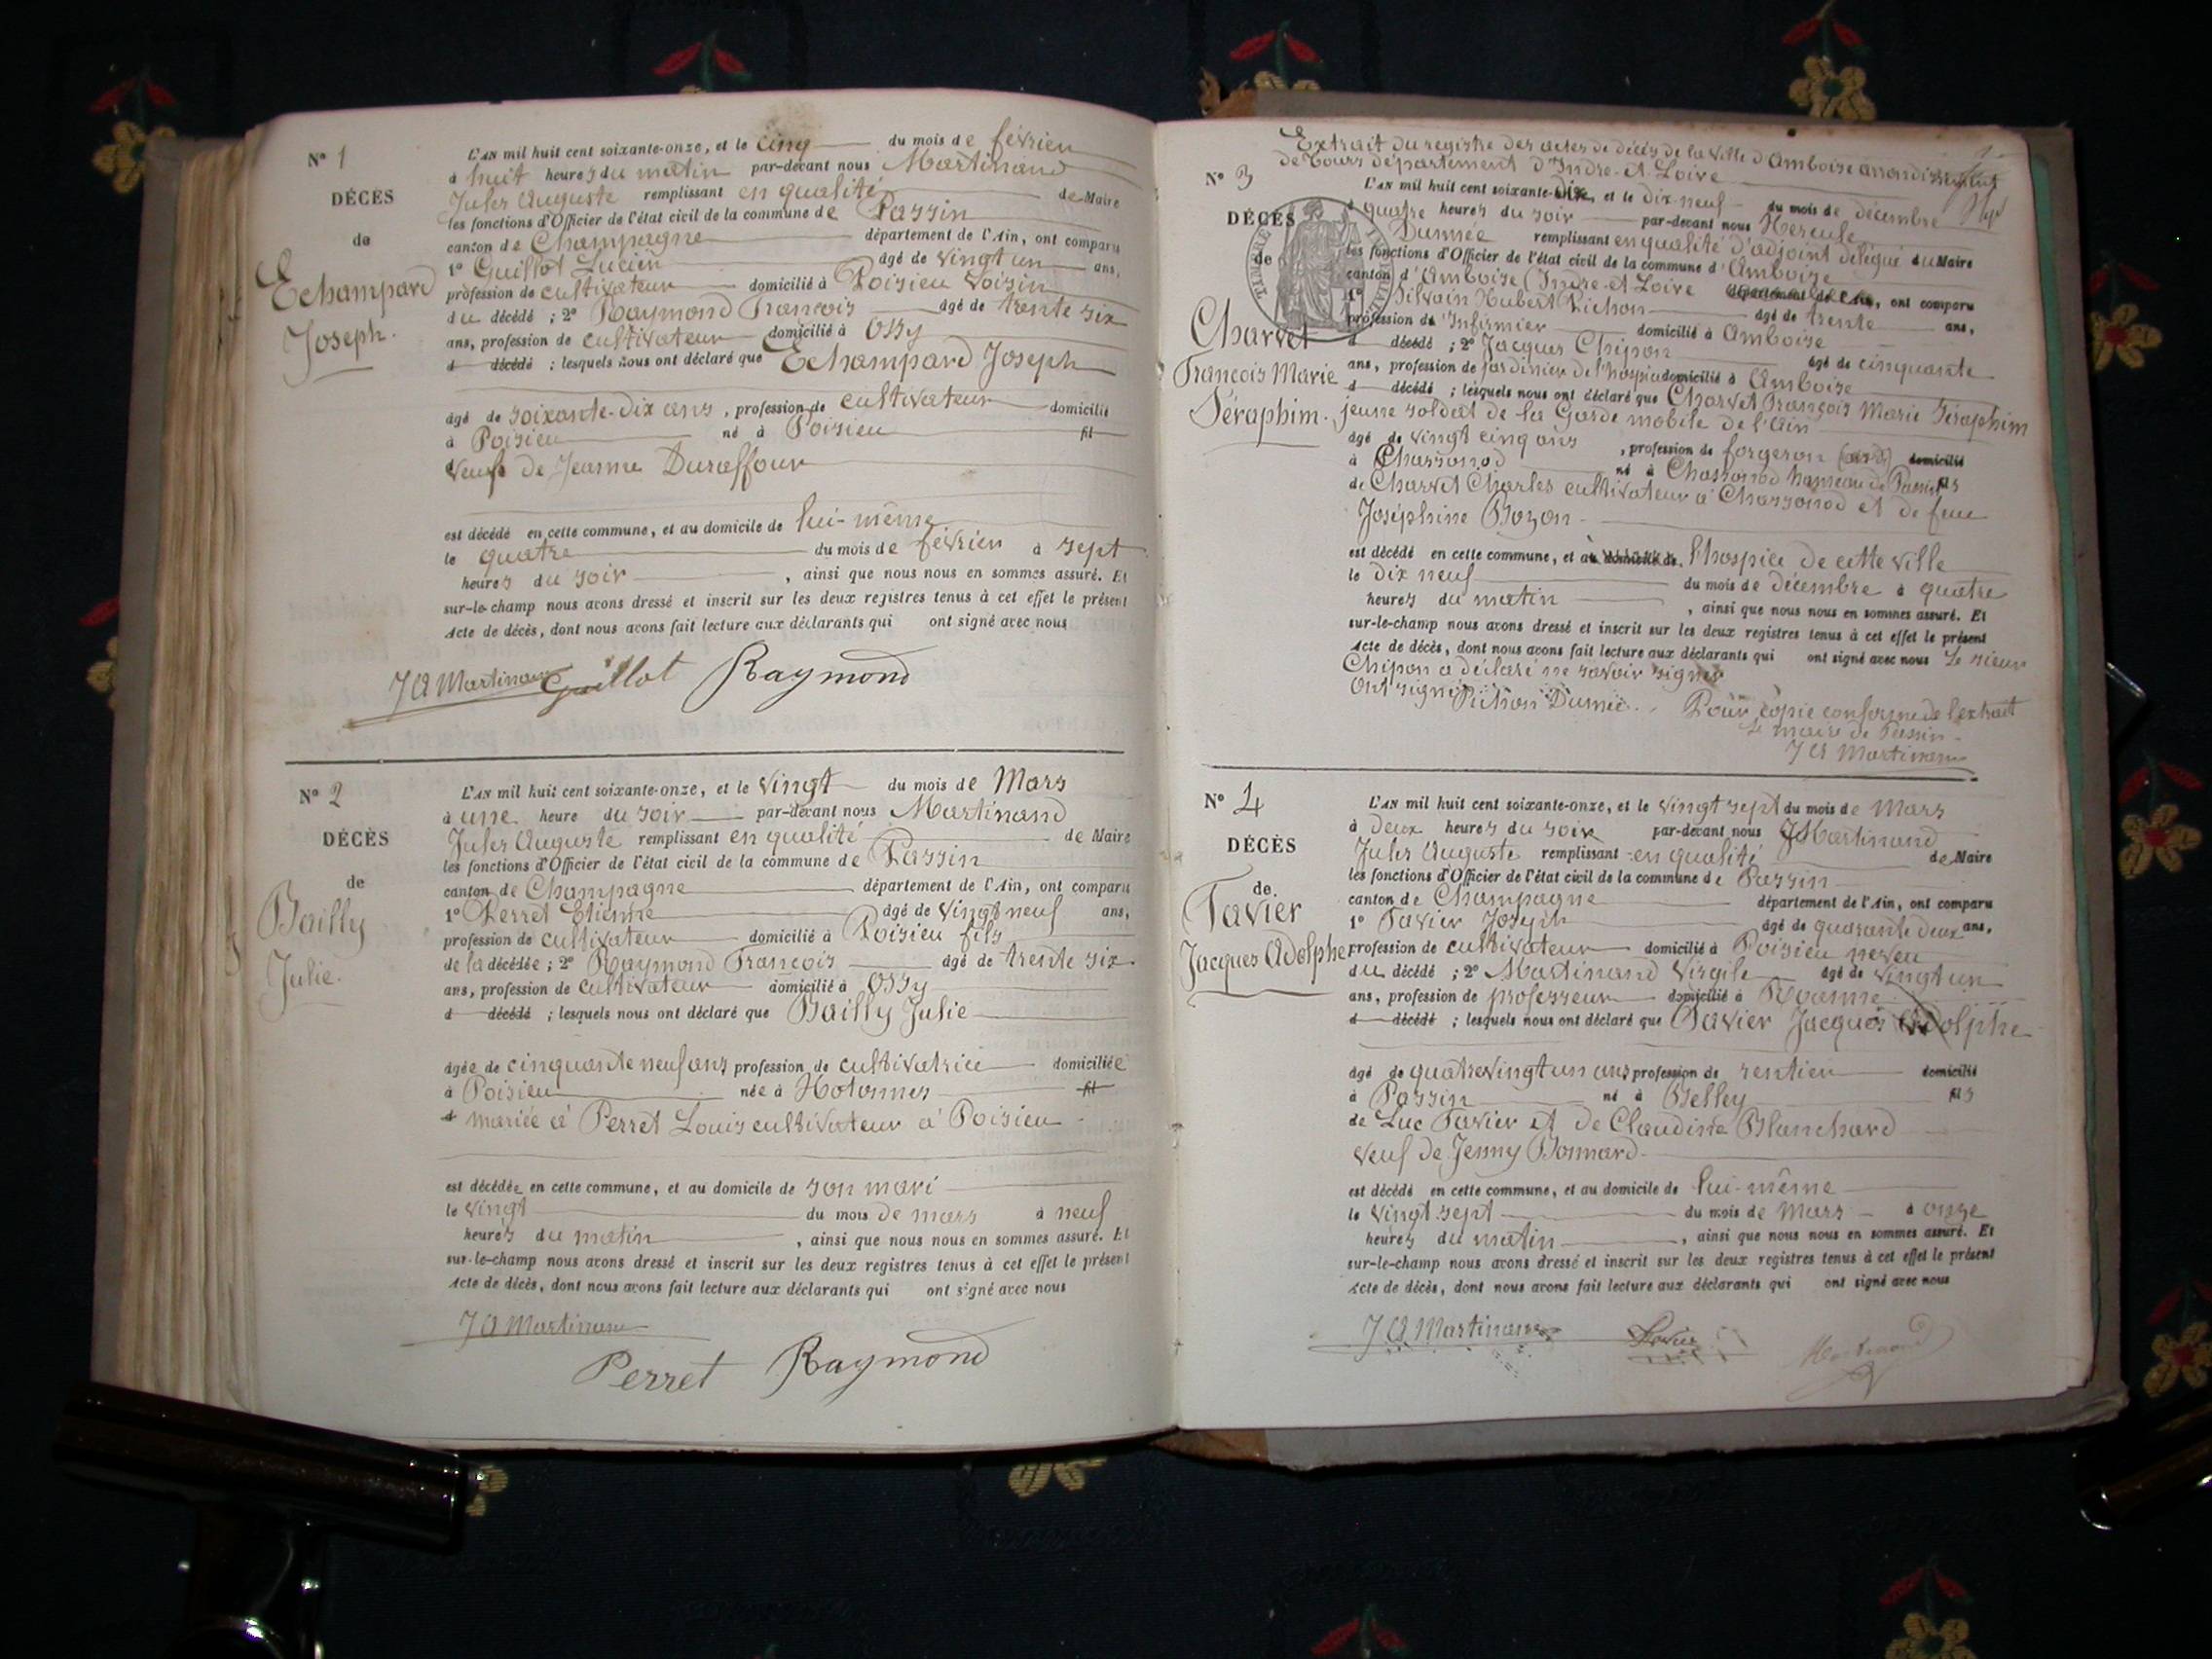 Nº 1
DÉCÈS
de
Echampard
Joseph.
L'AN mil huit cent soixante-onze, et le cinq du mois de février
à huit heures du matin par-devant nous Martinand
Jules Auguste remplissant en qualité de Maire
les fonctions d'Officier de l'état civil de la commune de Passin
canton de Champagne département de l'Ain, ont comparu
1º Guillot Lucien âgé de vingt un ans,
profession de cultivateur domicilié à Poisieu voisin
du décédé ; 2º Raymond François âgé de trente six
ans, profession de cultivateur domicilié à Ossy
d décédé ; lesquels nous ont déclaré que Echampard Joseph
âgé de soixante-dix ans, profession de cultivateur domicilié
à Poisieu né à Poisieu fil
veuf de Jeanne Duraffour
est décédé en cette commune, et au domicile de lui-même
le quatre du mois de février à sept
heures du soir, ainsi que nous nous en sommes assuré. Et
sur-le-champ nous avons dressé et inscrit sur les deux registres tenus à cet effet le présent
Acte de décès, dont nous avons fait lecture aux déclarants qui ont signé avec nous
J A Martinand Guillot Raymond
Nº 2
DÉCÈS
de
Bailly
Julie.
L'AN mil huit cent soixante-onze, et le vingt du mois de Mars
à une heure du soir par-devant nous Martinand
Jules Auguste remplissant en qualité de Maire
les fonctions d'Officier de l'état civil de la commune de Passin
canton de Champagne département de l'Ain, ont comparu
1º Perret Etienne âgé de vingt neuf ans,
profession de cultivateur domicilié à Poisieu fils
de la décédée ; 2º Raymond François âgé de trente six
ans, profession de cultivateur domicilié à Ossy
d décédé ; lesquels nous ont déclaré que Bailly Julie
âgée de cinquante neuf ans profession de cultivatrice domiciliée
à Poisieu née à Hotonnes fil
d mariée à Perret Louis cultivateur à Poisieu
est décédée en cette commune, et au domicile de son mari
le vingt du mois de mars à neuf
heures du matin, ainsi que nous nous en sommes assuré. Et
sur-le-champ nous avons dressé et inscrit sur les deux registres tenus à cet effet le présent
Acte de décès, dont nous avons fait lecture aux déclarants qui ont signé avec nous
J A Martinand
Perret Raymond
Extrait du registre des actes de décès de la ville d'Amboise arrondissement
de Tours département d'Indre-et-Loire
Nº 3
DÉCÈS
de
Charvet
François Marie
Séraphim.
L'AN mil huit cent soixante-dix, et le dix-neuf du mois de décembre
à quatre heures du soir par-devant nous Hercule
Dumée remplissant en qualité d'adjoint délégué du Maire
les fonctions d'Officier de l'état civil de la commune d'Amboise
canton d'Amboise (Indre-et-Loire département de l'Ain, ont comparu
1º Silvain Hubert Pichon âgé de trente ans,
profession de infirmier domicilié à Amboise
d décédé ; 2º Jacques Chipon âgé de cinquante
ans, profession de jardinier de l'hospice domicilié à Amboise
d décédé ; lesquels nous ont déclaré que Charvet François Marie Séraphim
jeune soldat de la Garde mobile de l'Ain
âgé de vingt cinq ans, profession de forgeron domicilié
à Chassonod né à Chassonod hameau de Passin fils
de Charvet Charles cultivateur à Chassonod et de feue
Joséphine Bozon
est décédé en cette commune, et au domicile de l'hospice de cette ville
le dix neuf du mois de décembre à quatre
heures du matin, ainsi que nous nous en sommes assuré. Et
sur-le-champ nous avons dressé et inscrit sur les deux registres tenus à cet effet le présent
Acte de décès, dont nous avons fait lecture aux déclarants qui ont signé avec nous Le sieur
Chipon a déclaré ne savoir signer
Ont signé Pichon Dumée. Pour copie conforme de l'extrait
Le maire de Passin
J A Martinand
Nº 4
DÉCÈS
de
Tavier
Jacques Adolphe
L'AN mil huit cent soixante-onze, et le vingt sept du mois de Mars
à deux heures du soir par-devant nous Martinand
Jules Auguste remplissant en qualité de Maire
les fonctions d'Officier de l'état civil de la commune de Passin
canton de Champagne département de l'Ain, ont comparu
1º Tavier Joseph âgé de quarante deux ans,
profession de cultivateur domicilié à Poisieu neveu
du décédé ; 2º Martinand Virgile âgé de vingt un
ans, profession de professeur domicilié à Roanne
d décédé ; lesquels nous ont déclaré que Tavier Jacques Adolphe
âgé de quatre vingt un ans profession de rentier domicilié
à Passin né à Belley fils
de Luc Tavier et de Claudine Blanchard
veuf de Jenny Bonnard
est décédé en cette commune, et au domicile de lui-même
le vingt sept du mois de Mars à onze
heures du matin, ainsi que nous nous en sommes assuré. Et
sur-le-champ nous avons dressé et inscrit sur les deux registres tenus à cet effet le présent
Acte de décès, dont nous avons fait lecture aux déclarants qui ont signé avec nous
J A Martinand Tavier Martinand